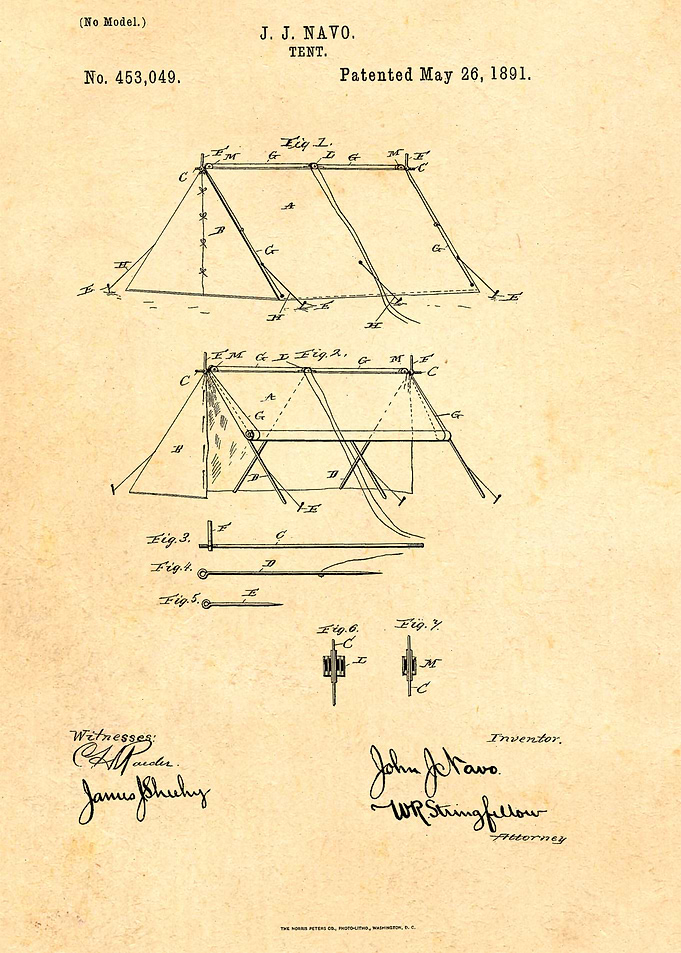 (No Model.)
J. J. NAVO.
TENT.
No. 453,049.
Patented May 26, 1891.
Fig 1.
F M G L G M F
C C
A
B
G G
H
E E E
H H
Fig. 2.
F M G L G M F
C C
A
G G
B
D D
E
Fig. 3. F C
Fig. 4. D
Fig. 5. E
Fig. 6. Fig. 7.
C
L M
C
Witnesses:
James J Sheehy
Inventor.
John J Navo.
W R Stringfellow
Attorney
THE NORRIS PETERS CO., PHOTO-LITHO., WASHINGTON, D. C.